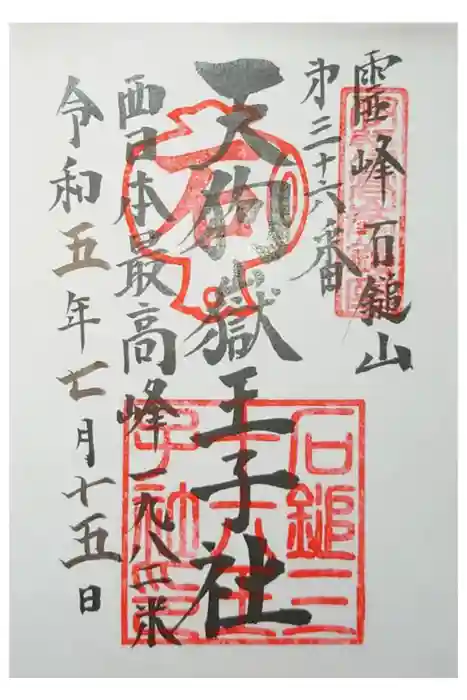 霊峰石鎚山
第三十六番
天狗嶽王子社
西日本最高峰一九八二米
令和五年七月十五日
石鎚三
十六王
子社